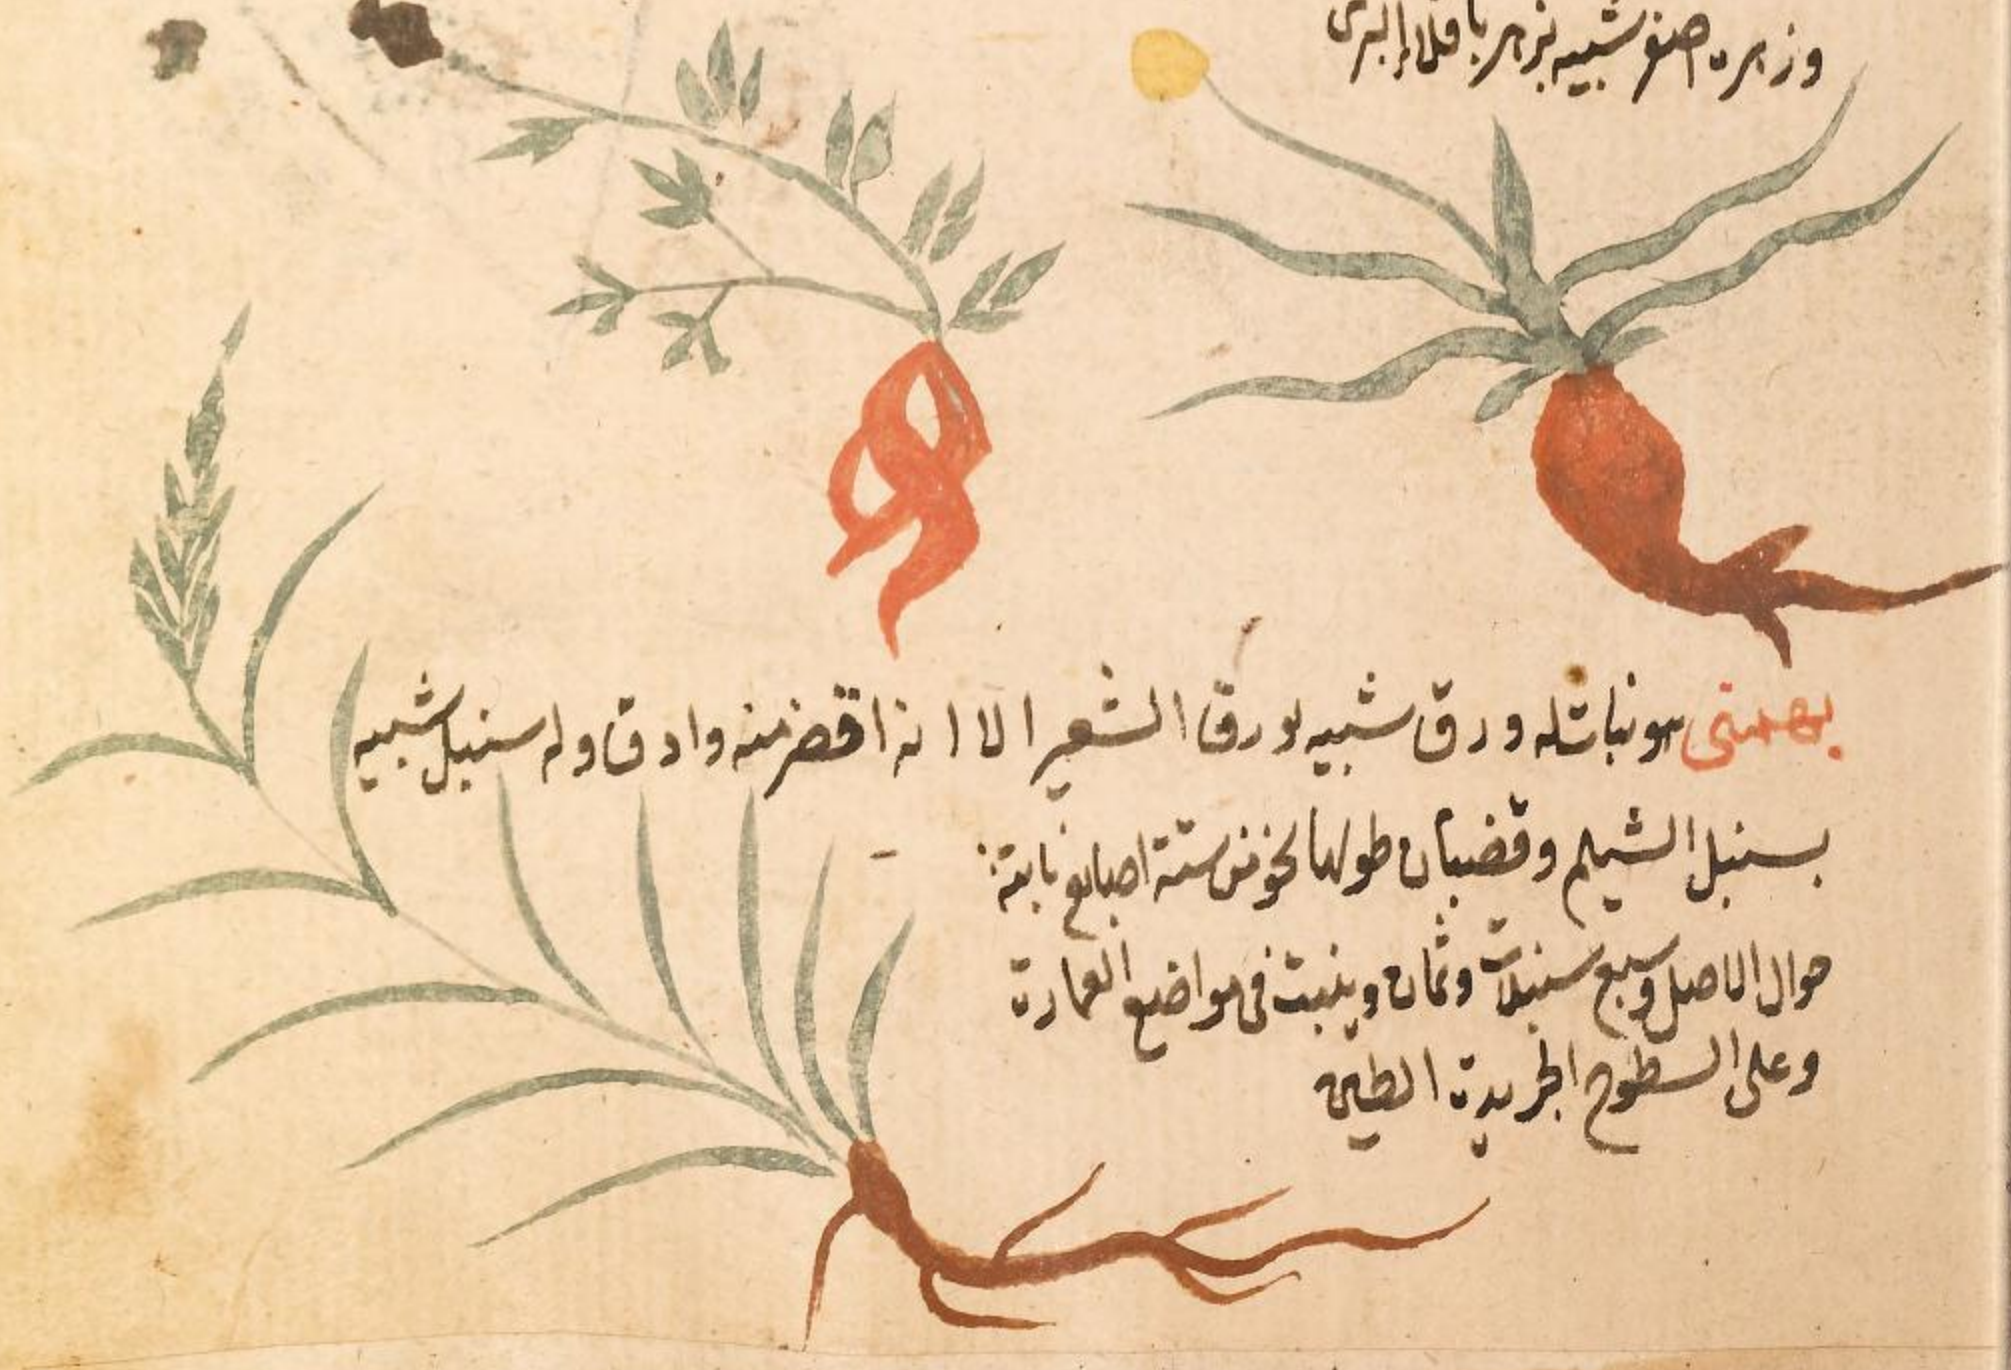 وزهره اصفر شبيه بزهر باقلاء البرى
بهمتى هو نبات له ورق شبيه بورق الشعير الا انه اقصر منه وادق وله سنبل شبيه
بسنبل الشيلم وقضبان طولها نحو من ستة اصابع نابتة
حوال الاصل وسبع سنبلات وثمان وينبت فى مواضع العمارة
وعلى السطوح الجريدة الطين